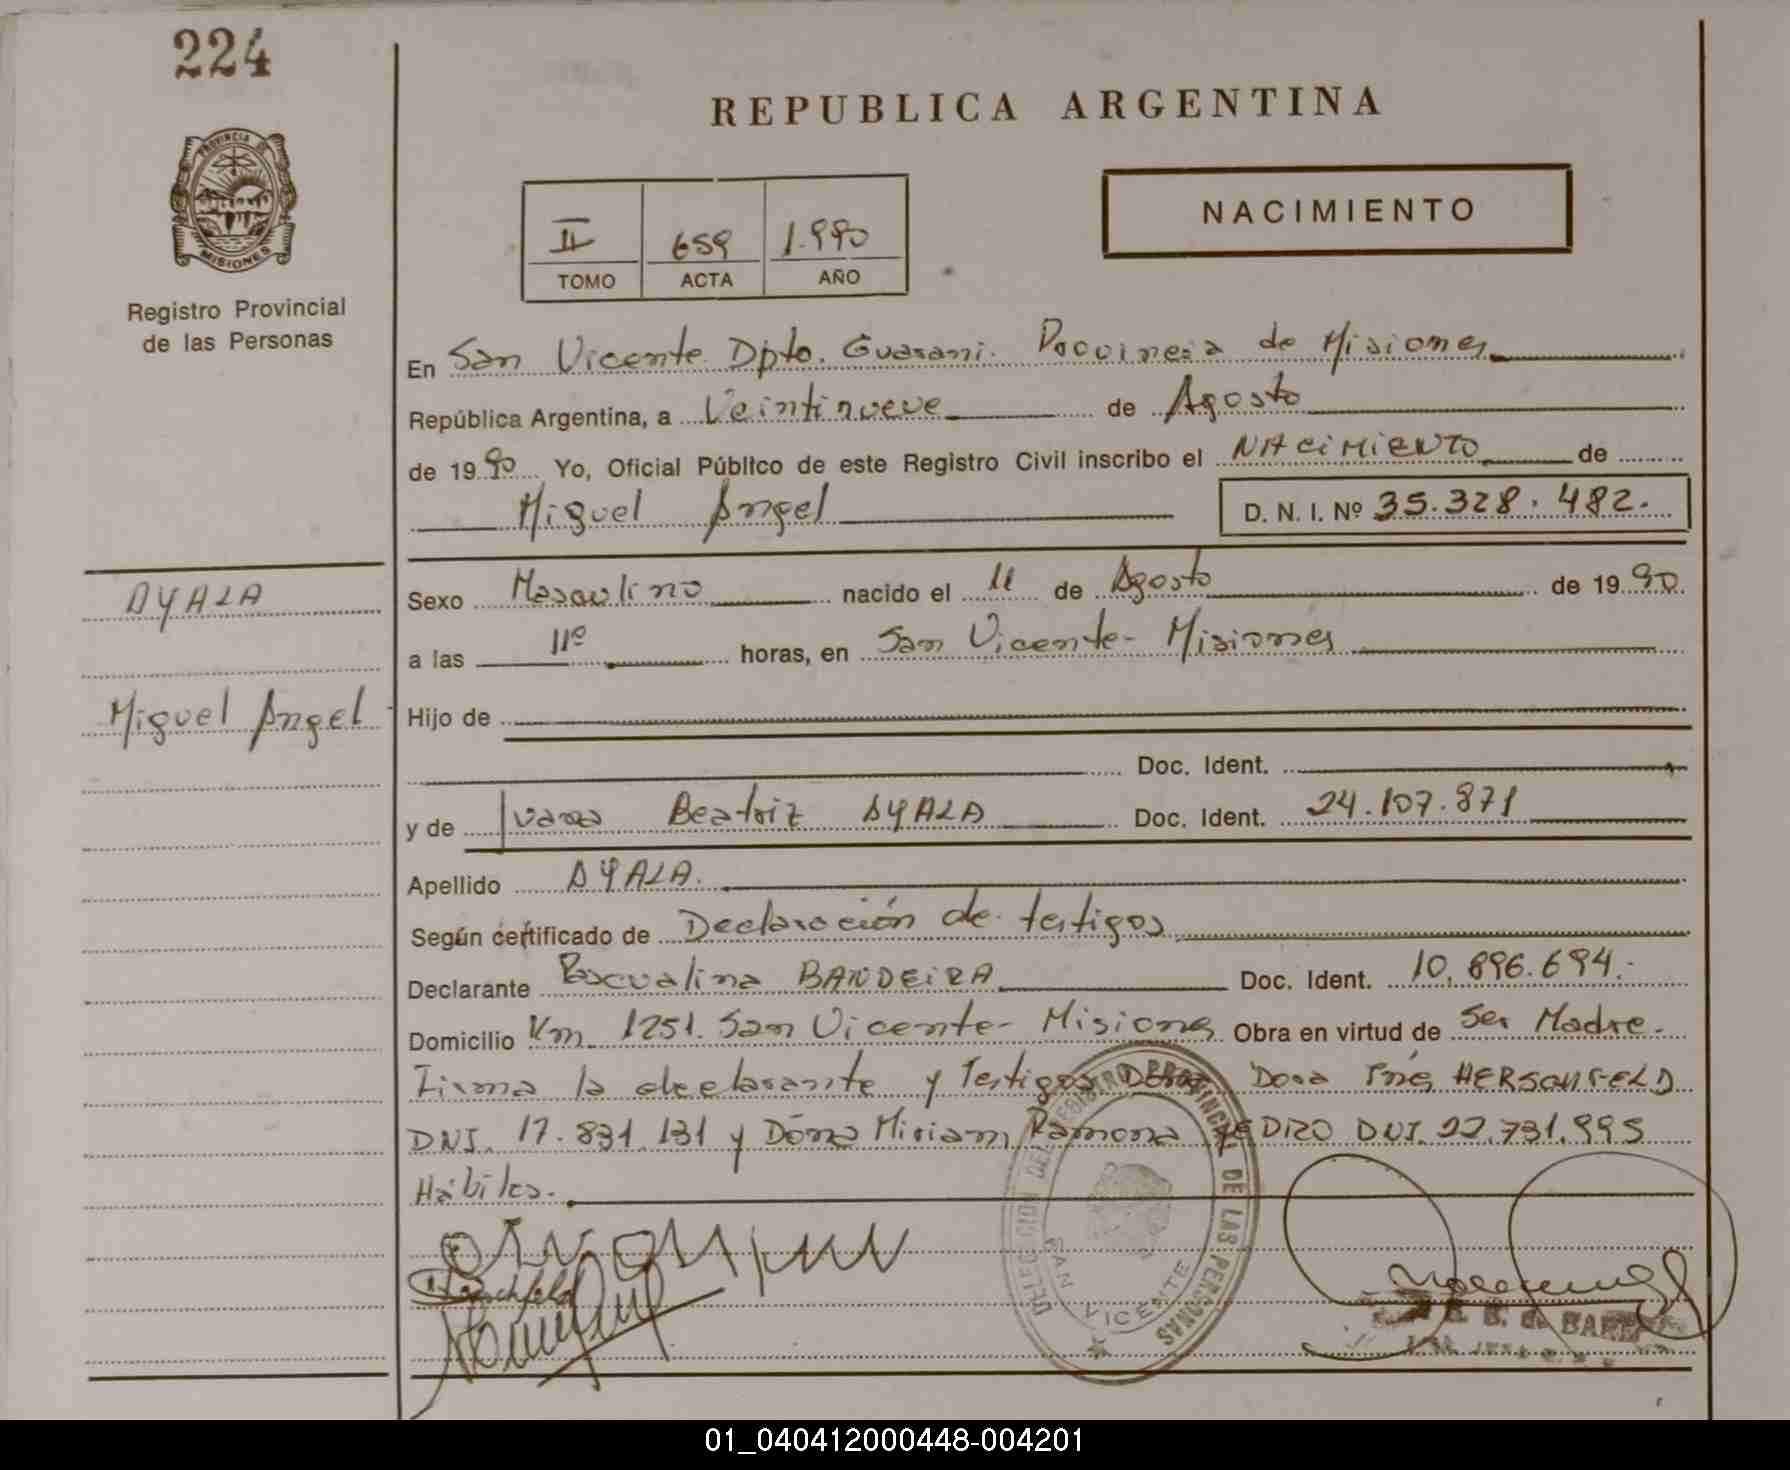 224
REPUBLICA ARGENTINA
PROVINCIA DE
MISIONES
Registro Provincial
de las Personas
NACIMIENTO
II 659 1.990
TOMO ACTA AÑO
En San Vicente Dpto. Guarani. Provincia de Misiones
República Argentina, a Veintinueve de Agosto
de 1990 Yo, Oficial Público de este Registro Civil inscribo el NACIMIENTO de
Miguel Angel D. N. I. Nº 35.328.482.
AYALA
Miguel Angel
Sexo Masculino nacido el 11 de Agosto de 1990
a las 11º horas, en San Vicente - Misiones
Hijo de
Doc. Ident.
y de Beatriz AYALA Doc. Ident. 24.107.871
Apellido AYALA.
Según certificado de Declaración de testigos
Declarante Pascualina BANDEIRA Doc. Ident. 10.896.694.-
Domicilio Km. 1251. San Vicente - Misiones Obra en virtud de Ser Madre.
Firma la declarante y Testigos Doña Dora Inés HERSCHFELD
DNI. 17.831.131 y Doña Miriam Ramona DNI. 22.731.995
Hábiles.
DELEGACION DEL REGISTRO PROVINCIAL DE LAS PERSONAS
SAN VICENTE
01_040412000448-004201